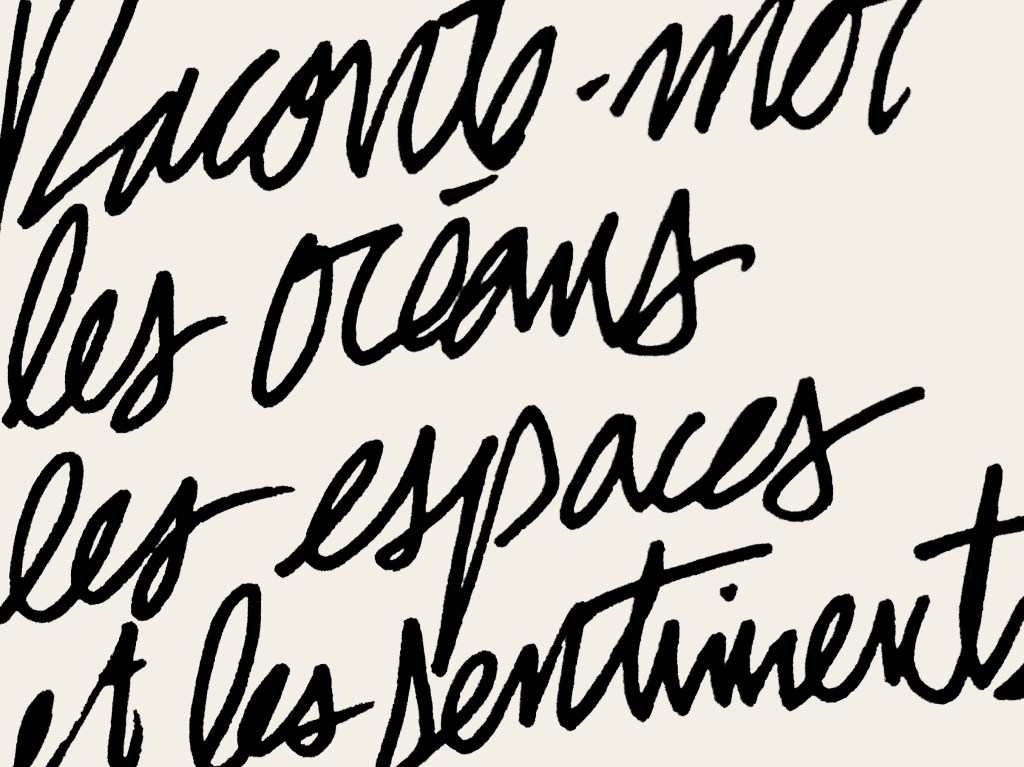 Raconte-moi
les océans
les espaces
et les sentiments